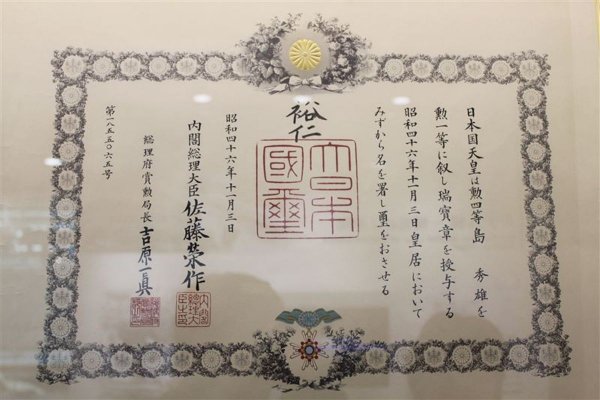 日本国天皇は勲四等島 秀雄を
勲一等に叙し瑞寳章を授与する
昭和四十六年十一月三日皇居において
みずから名を署し璽をおさせる
裕仁
大日本國璽
昭和四十六年十一月三日
内閣総理大臣佐藤榮作
内閣總理大臣之印
総理府賞勲局長吉原一眞
第一八五五〇六五号